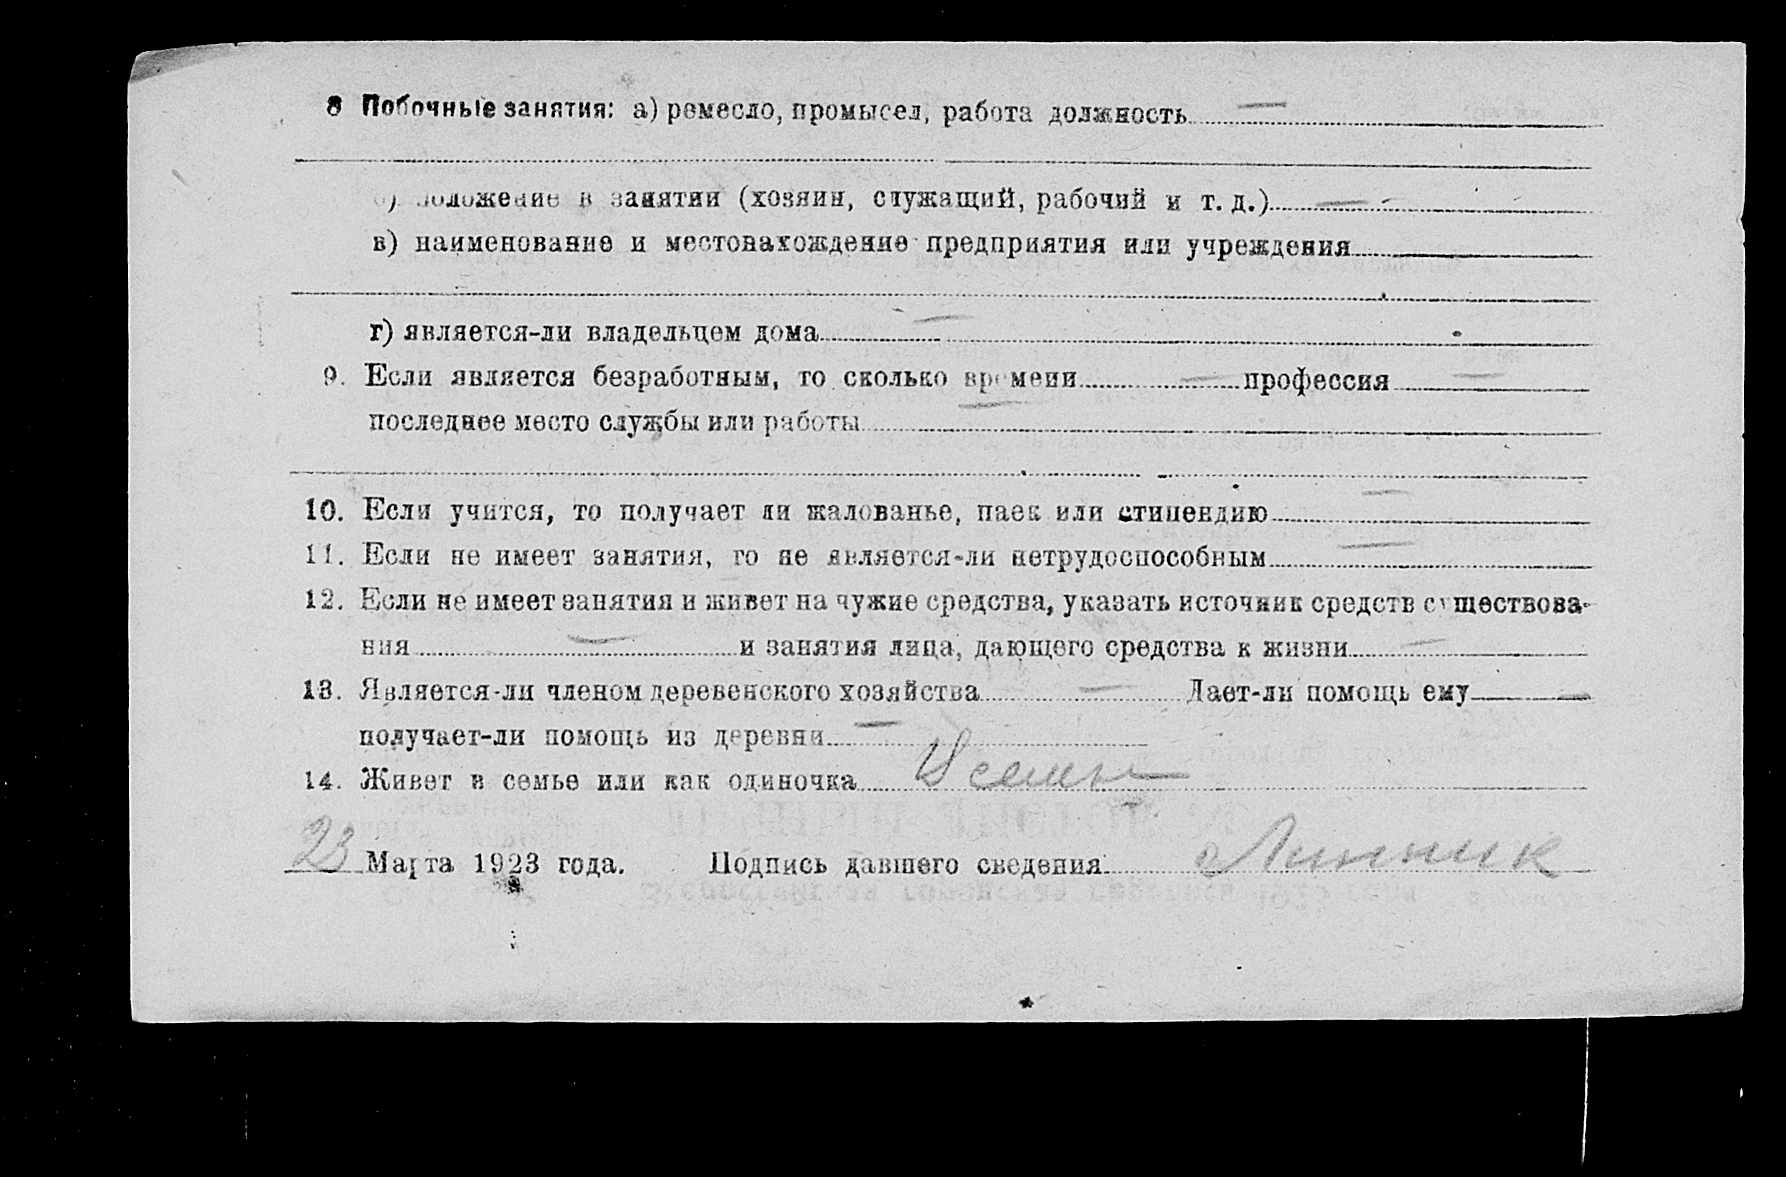 8 Побочные занятия: а) ремесло, промысел, работа должность —
б) положение в занятии (хозяин, служащий, рабочий и т. д.) —
в) наименование и местонахождение предприятия или учреждения
г) является-ли владельцем дома —
9. Если является безработным, то сколько времени — профессия —
последнее место службы или работы —
10. Если учится, то получает ли жалованье, паек или стипендию —
11. Если не имеет занятия, то не является-ли нетрудоспособным —
12. Если не имеет занятия и живет на чужие средства, указать источник средств существова-
ния — и занятия лица, дающего средства к жизни —
13. Является-ли членом деревенского хозяйства — Дает-ли помощь ему —
получает-ли помощь из деревни —
14. Живет в семье или как одиночка В семье
23 Марта 1923 года. Подпись давшего сведения: Линник